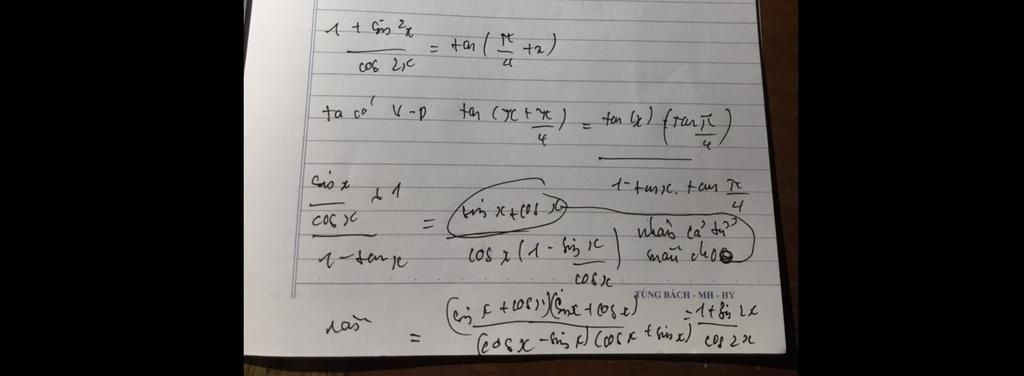 1 + sin 2x / cos 2x = tan ( π/4 + x )
ta có V-P tan ( x + π/4 ) = tan(x) ( tan π/4 ) / 1 - tan x . tan π/4
sin x / cos x + 1 / 1 - tan x = sin x + cos x / cos x ( 1 - sin x / cos x ) nhân cả tử mẫu cho
TÙNG BÁCH - MH - HY
= (sin x + cos x)(sin x + cos x) / (cos x - sin x)(cos x + sin x) = 1 + sin 2x / cos 2x